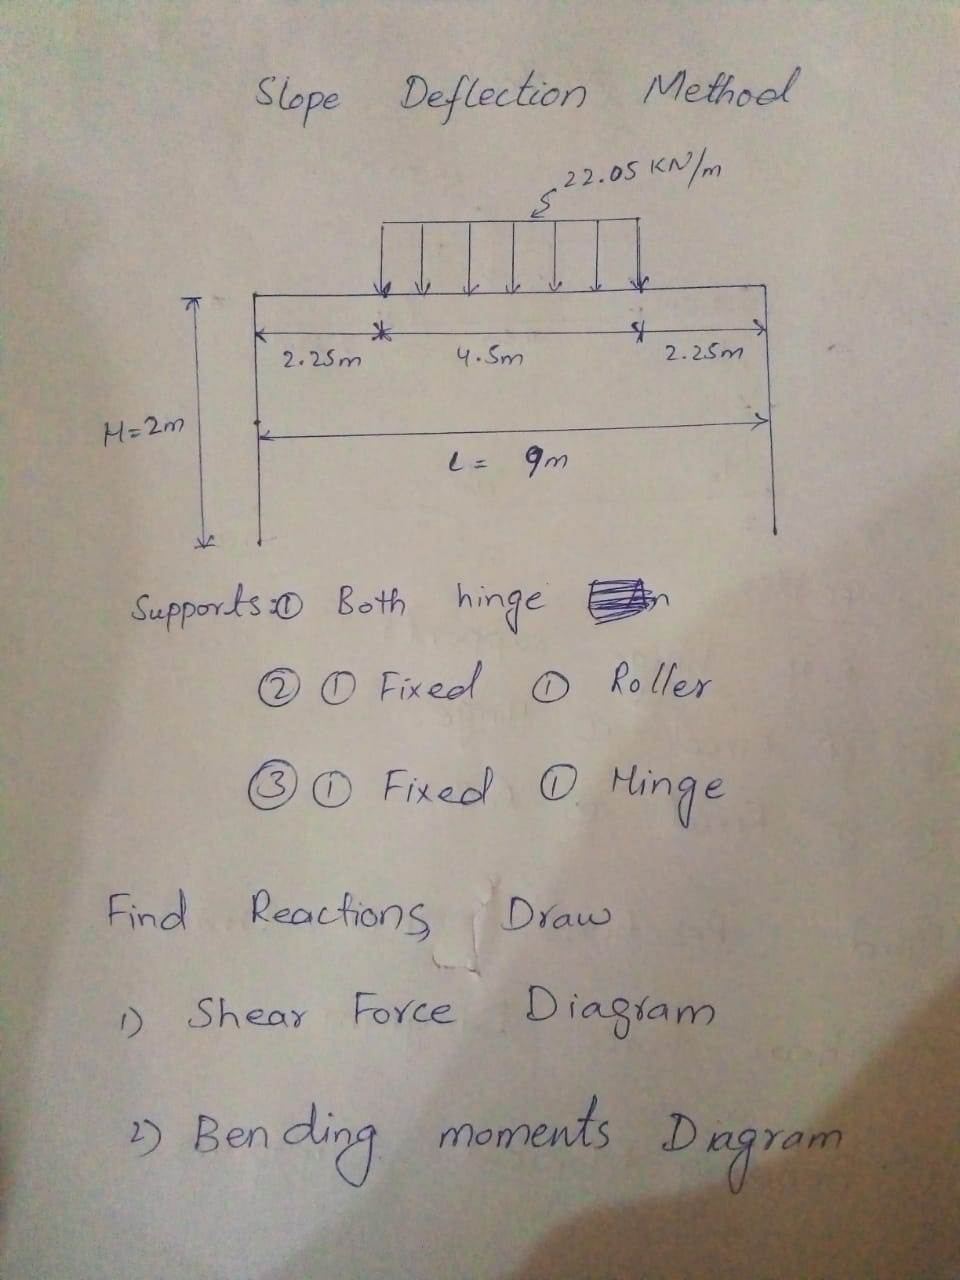 Slope Deflection Method
22.05 KN/m
2.25m 4.5m 2.25m
H=2m
L= 9m
Supports:① Both hinge
② ① Fixed ① Roller
③ ① Fixed ① Hinge
Find Reactions, Draw
1) Shear Force Diagram
2) Bending moments Diagram